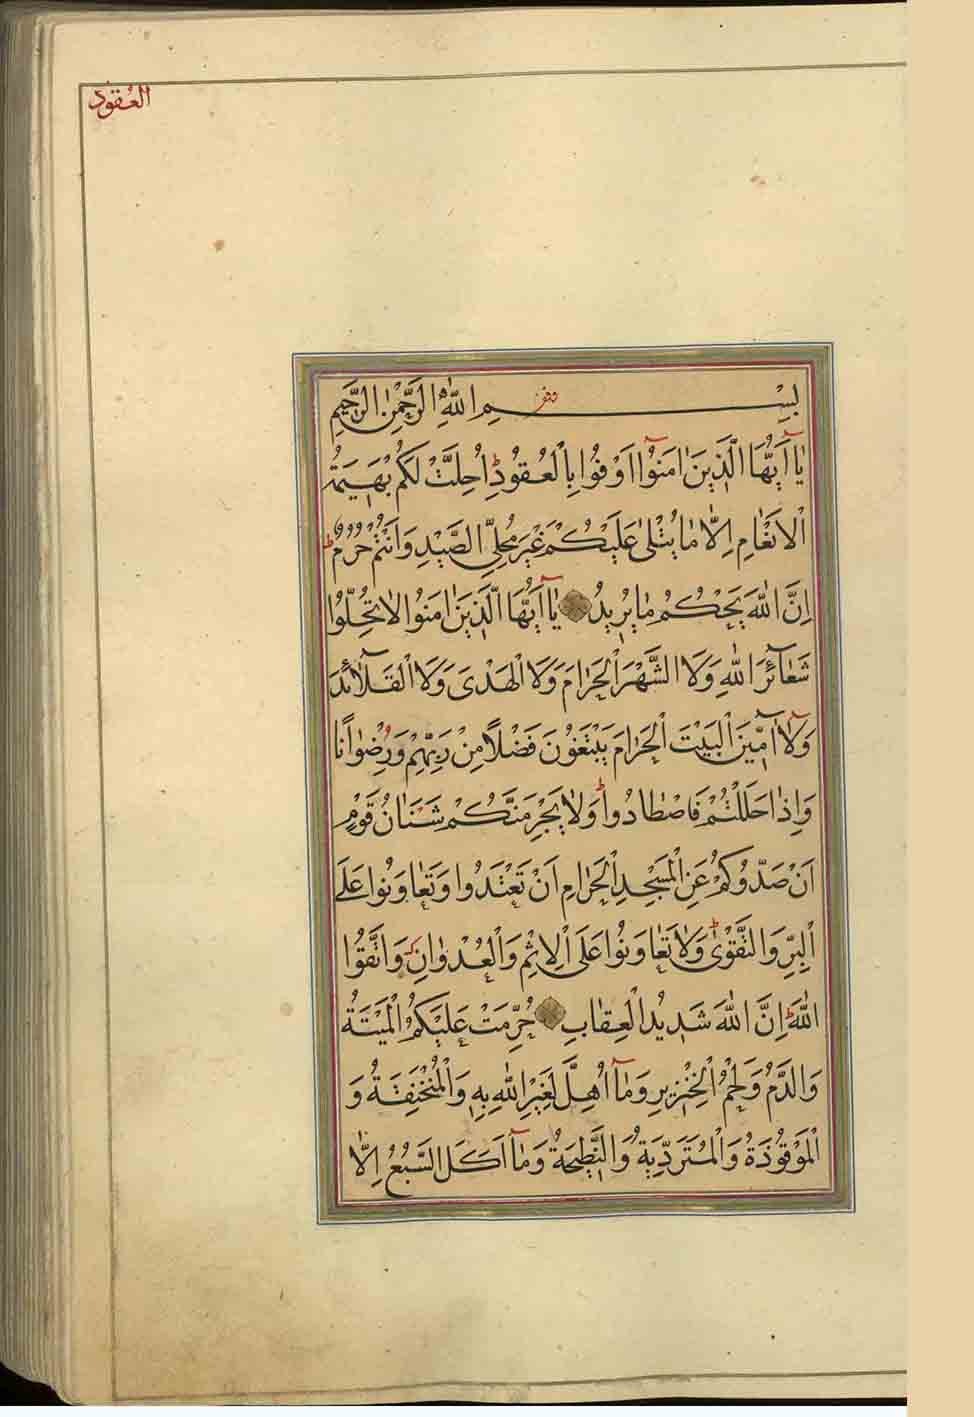 العقود
بِسْمِ اللّٰهِ الرَّحْمٰنِ الرَّحِيمِ
يَٓا اَيُّهَا الَّذِينَ اٰمَنُٓوا اَوْفُوا بِالْعُقُودِ ط اُحِلَّتْ لَكُمْ بَهِيمَةُ
الْاَنْعَامِ اِلَّا مَا يُتْلٰى عَلَيْكُمْ غَيْرَ مُحِلِّي الصَّيْدِ وَاَنْتُمْ حُرُمٌ ط
اِنَّ اللّٰهَ يَحْكُمُ مَا يُرِيدُ يَٓا اَيُّهَا الَّذِينَ اٰمَنُوا لَا تُحِلُّوا
شَعَٓائِرَ اللّٰهِ وَلَا الشَّهْرَ الْحَرَامَ وَلَا الْهَدْىَ وَلَا الْقَلَٓائِدَ
وَلَٓا اٰمِّينَ الْبَيْتَ الْحَرَامَ يَبْتَغُونَ فَضْلًا مِنْ رَبِّهِمْ وَرِضْوَانًا
وَاِذَا حَلَلْتُمْ فَاصْطَادُوا ط وَلَا يَجْرِمَنَّكُمْ شَنَاٰنُ قَوْمٍ
اَنْ صَدُّوكُمْ عَنِ الْمَسْجِدِ الْحَرَامِ اَنْ تَعْتَدُوا وَتَعَاوَنُوا عَلَى
الْبِرِّ وَالتَّقْوٰى ط وَلَا تَعَاوَنُوا عَلَى الْاِثْمِ وَالْعُدْوَانِ وَاتَّقُوا
اللّٰهَ ط اِنَّ اللّٰهَ شَدِيدُ الْعِقَابِ حُرِّمَتْ عَلَيْكُمُ الْمَيْتَةُ
وَالدَّمُ وَلَحْمُ الْخِنْزِيرِ وَمَٓا اُهِلَّ لِغَيْرِ اللّٰهِ بِهِ وَالْمُنْخَنِقَةُ وَ
الْمَوْقُوذَةُ وَالْمُتَرَدِّيَةُ وَالنَّطِيحَةُ وَمَٓا اَكَلَ السَّبُعُ اِلَّا